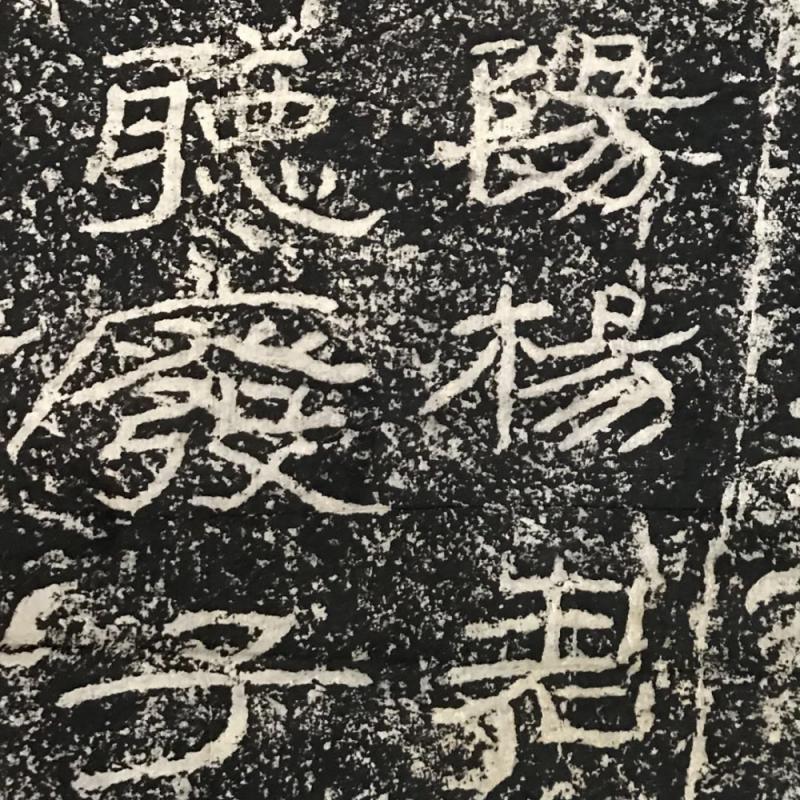 陽楊君
聽廢子